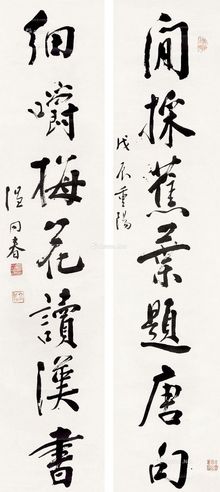 閒採蕉葉題唐句
戊辰重陽
細嚼梅花讀漢書
溫同春